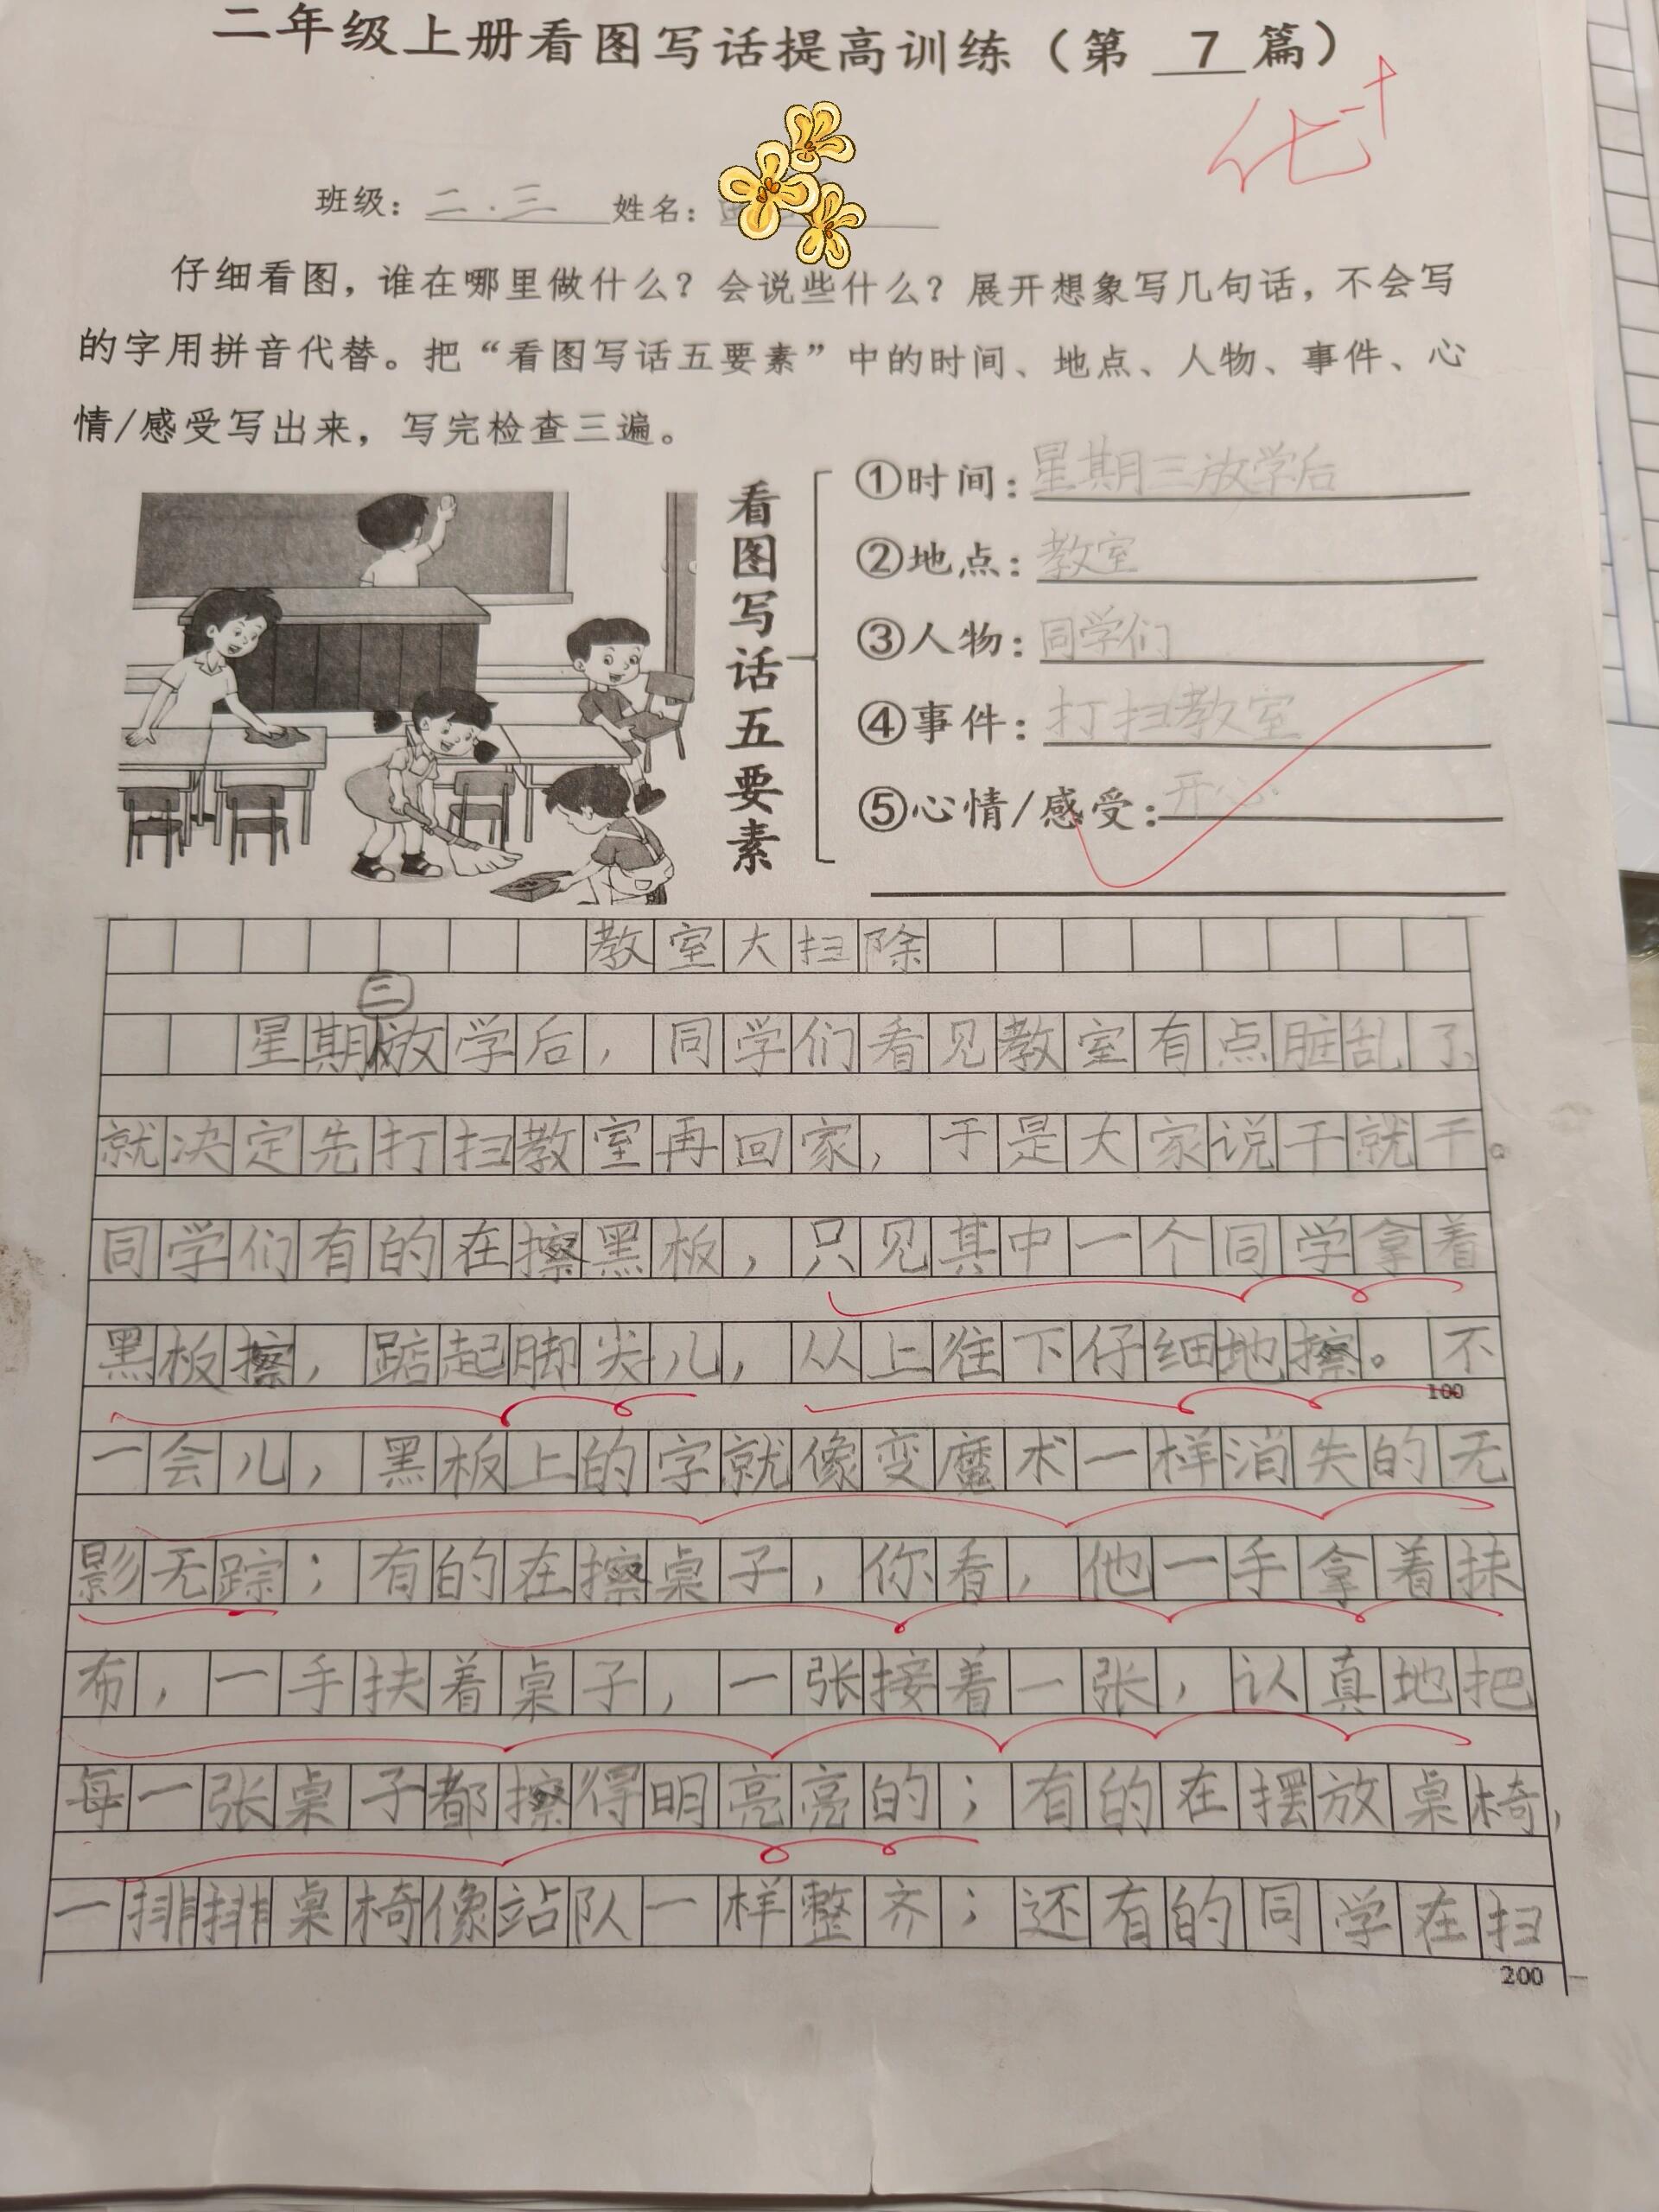 二年级上册看图写话提高训练（第 7 篇）
优+
班级：二.三 姓名：
仔细看图，谁在哪里做什么？会说些什么？展开想象写几句话，不会写
的字用拼音代替。把“看图写话五要素”中的时间、地点、人物、事件、心
情/感受写出来，写完检查三遍。
看图写话五要素
①时间：星期三放学后
②地点：教室
③人物：同学们
④事件：打扫教室
⑤心情/感受：开心
教室大扫除
星期三放学后，同学们看见教室有点脏乱了、
就决定先打扫教室再回家，于是大家说干就干。
同学们有的在擦黑板，只见其中一个同学拿着
黑板擦，踮起脚尖儿，从上往下仔细地擦。不
100
一会儿，黑板上的字就像变魔术一样消失的无
影无踪；有的在擦桌子，你看，他一手拿着抹
布，一手扶着桌子，一张接着一张，认真地把
每一张桌子都擦得明亮亮的；有的在摆放桌椅，
一排排桌椅像站队一样整齐；还有的同学在扫
200